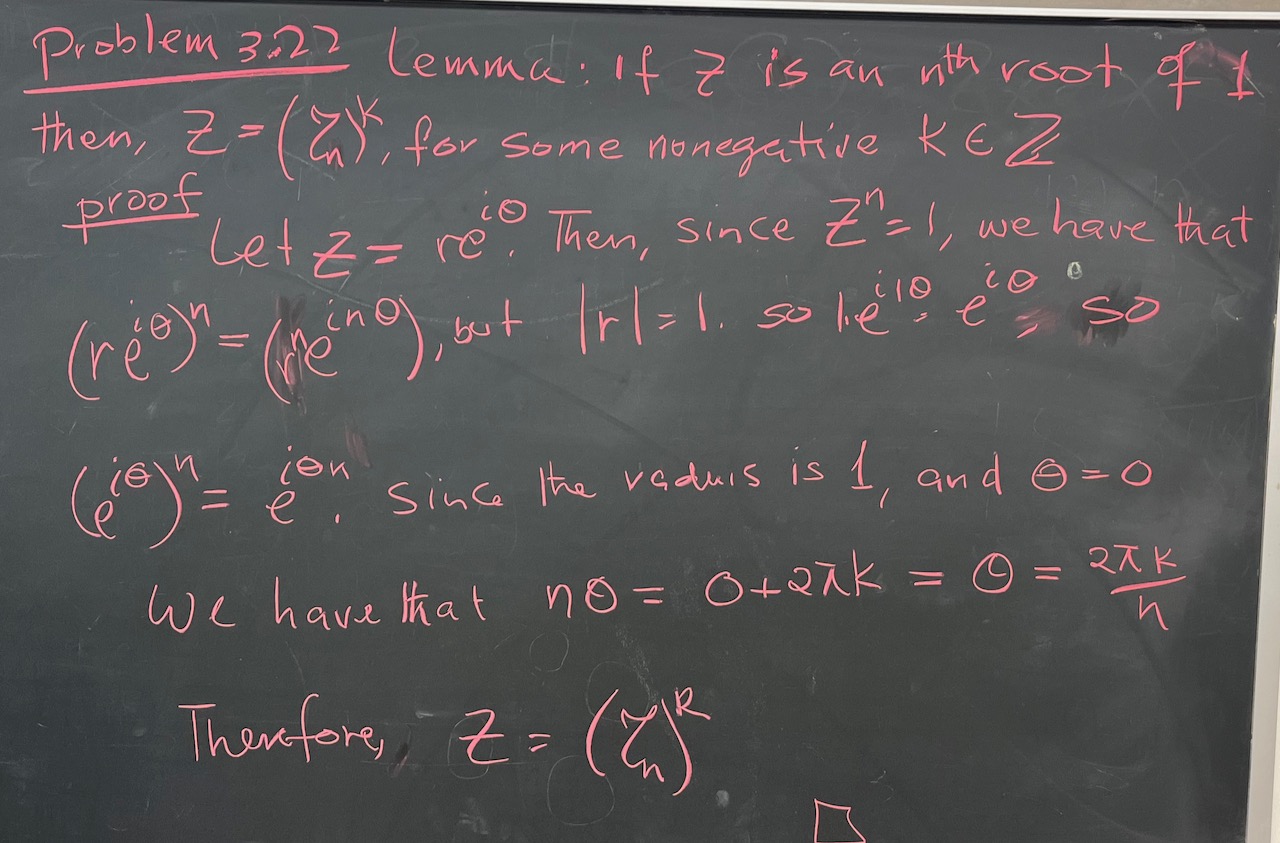 Problem 3.22 Lemma: If z is an nth root of 1
then, z = (ζₙ)ᵏ, for some nonegative k ∈ ℤ
proof
Let z = re^{iθ}. Then, since zⁿ = 1, we have that
(re^{iθ})ⁿ = (rⁿe^{inθ}), but |r| = 1. so 1·e^{i1θ} = e^{iθ}, so
(e^{iθ})ⁿ = e^{iθn}. Since the radius is 1, and θ = 0
We have that nθ = 0 + 2πk = θ = 2πk/n
Therefore, z = (ζₙ)ᵏ
□